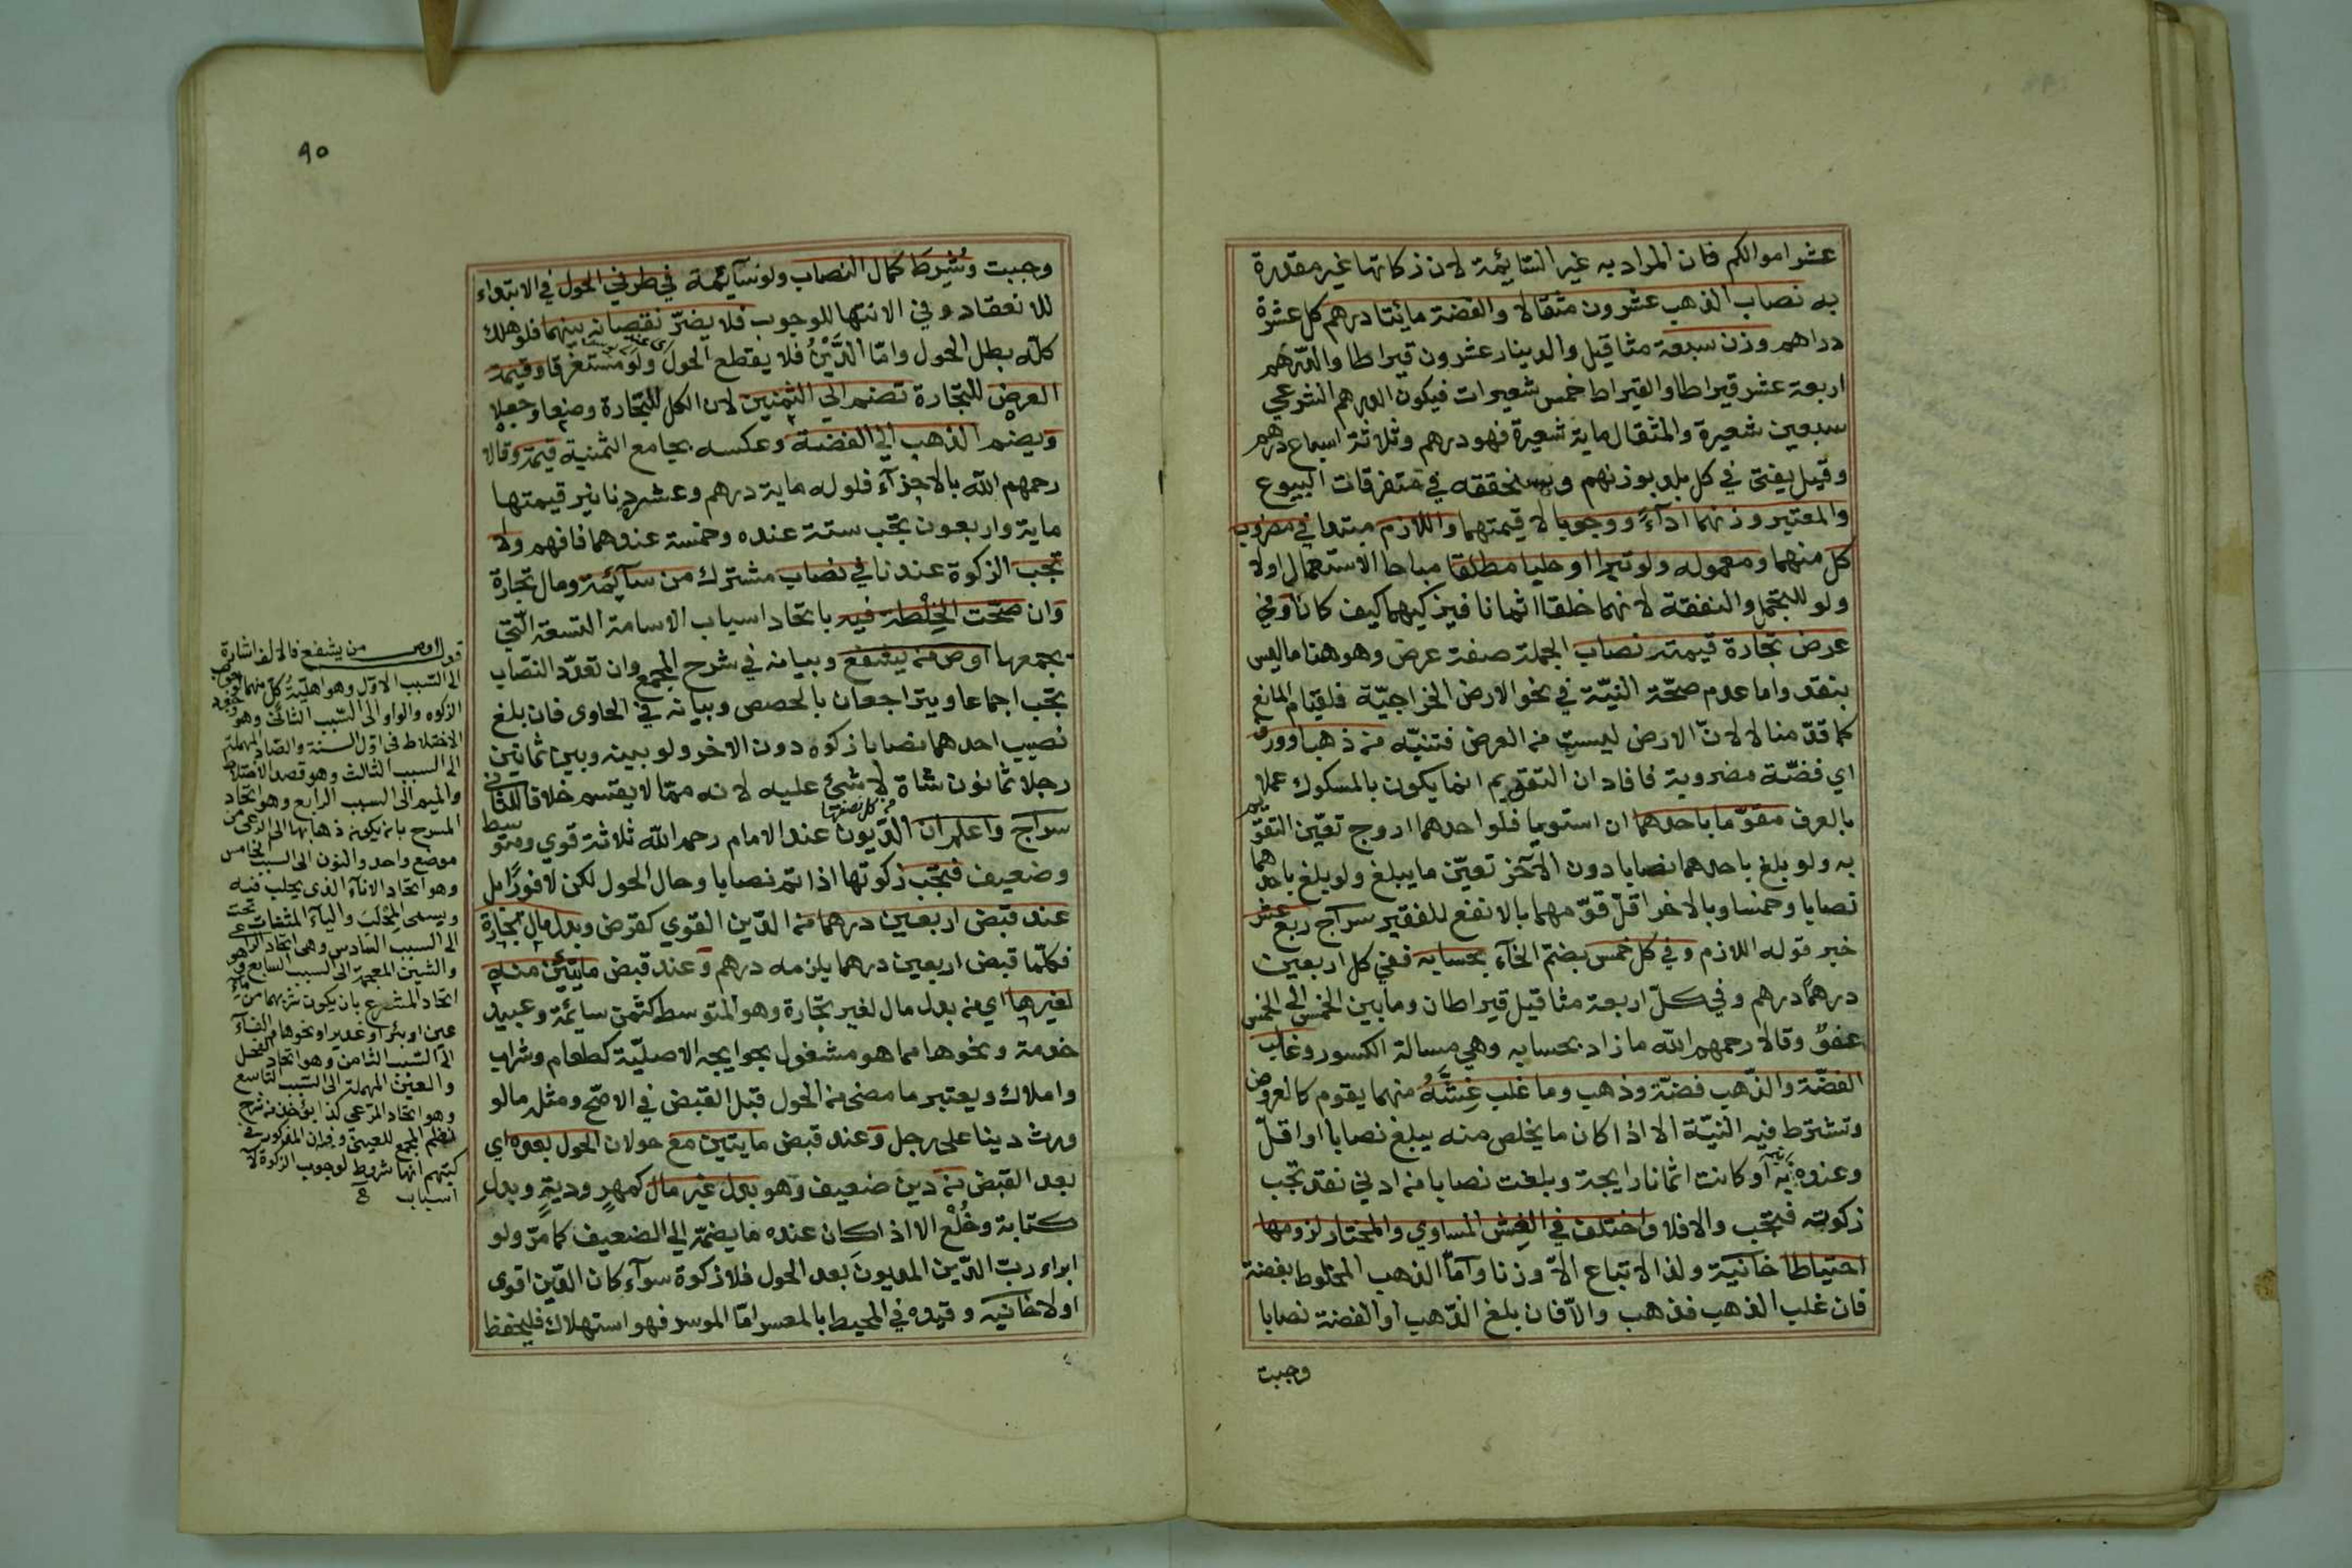 عشر اموالكم فان المراد به غير السّايمة لان زكاتها غير مقدرة
به نصاب الذهب عشرون مثقالا والفضة مايتا درهم كل عشرة
دراهم وزن سبعة مثاقيل والدينار عشرون قيراطا والدرهم
اربعة عشر قيراطا والقيراط خمس شعيرات فيكون الدرهم الشرعي
سبعين شعيرة والمثقال ماية شعيرة فهو درهم وثلاثة اسباع درهم
وقيل يفتى في كل بلد بوزنهم وسنحققه في متفرقات البيوع
والمعتبر وزنهما اداءً ووجوبا لا قيمتهما واللازم مبتدا في مضروب
كل منهما ومعموله ولو تبرا او حليا مطلقا مباحا الاستعمال اولا
ولو للتجمل والنفقة لانهما خلقا اثمانا فيزكيهما كيف كانا وفي
عرض تجارة قيمته نصاب الجملة صفة عرض وهو هنا ما ليس
بنقد واما عدم صحّة النيّة في نحو الارض الخراجيّة فلقيام المانع
كما قدّمنا لا لانّ الارض ليست من العرض فتنبّه من ذهب او ورق
اي فضّة مضروبة فافاد ان التقويم انما يكون بالمسكوك عملا
بالعرف مقوّما باحدهما ان استويا فلو احدهما اروج تعيّن التقويم
به ولو بلغ باحدهما نصابا دون الآخر تعيّن ما يبلغ ولو بلغ باحدهما
نصابا وخمسا وبالاخر اقلّ قوّمهما بالانفع للفقير سراج ربع عشر
خبر قوله اللازم وفي كل خمس بضمّ الخآء بحسابه ففي كل اربعين
درهمًا درهم وفي كلّ اربعة مثاقيل قيراطان وما بين الخمس الى الخمس
عفوٌ وقالا رحمهم الله ما زاد بحسابه وهي مسالة الكسور وغالب
الفضّة والذّهب فضّة وذهب وما غلب غِشَّهُ منهما يقوم كالعروض
وتشترط فيه النيّة الا اذا كان ما يخلص منه يبلغ نصابا او اقلّ
وعنده او كانت اثمانا رايجة وبلغت نصابا من ادني نقد تجب
زكوته فتجب والا فلا واختلف في الغِش المساوي والمختار لزومها
احتياطا خانية ولذا لا تباع الاّ وزنا وامّا الذهب المخلوط بفضة
فان غلب الذهب فذهب والاّ فان بلغ الذّهب او الفضة نصابا
وجبت
٩٥
وجبت وشُرِط كمال النصاب ولو سآيمة في طرفي الحول في الابتداء
للانعقاد وفي الانتها للوجوب فلا يضرّ نقصانه بينهما فلو هلك
كلّه بطل الحول وامّا الدَّيْنُ فلا يقطع الحول ولو مستغرقا وقيمة
العرض للتجارة تضم الي الثمنين لان الكل للتجارة وضعا وجعلا
ويضم الذهب الي الفضة وعكسه بجامع الثمنية قيمة وقالا
رحمهم الله بالاجزآء فلو له ماية درهم وعشر دنانير قيمتها
ماية واربعون تجب ستة عنده وخمسة عندهما فافهم ولا
تجب الزكوة عندنا في نصاب مشترك من سآيمة ومال تجارة
وان صحّت الخِلْطة فيه باتحاد اسباب الاسامة التسعة الّتي
يجمعها اوص من يشفع وبيانه في شرح المجمع وان تعدّد النصاب
تجب اجماعا ويتراجعان بالحصص وبيانه في الحاوى فان بلغ
نصيب احدهما نصابا زكوه دون الاخر ولو بينه وبين ثمانين
رجلا ثمانون شاة لا شئ عليه لانه ممّا لا يقسم خلافا للثاني
سراج واعلم ان الدّيون عند الامام رحمه الله ثلاثة قوي ومتوسط
وضعيف فتجب زكوتها اذا تم نصابا وحال الحول لكن لا فورًا بل
عند قبض اربعين درهما من الدّين القوي كقرض وبدل مال تجارة
فكلّما قبض اربعين درهما يلزمه درهم وعند قبض مايتين منه
لغيرها اي من بدل مال لغير تجارة وهو المتوسط كثمن سائمة وعبيد
خدمة ونحوها مما هو مشغول بحوايجه الاصليّة كطعام وشراب
واملاك ويعتبر ما مضى من الحول قبل القبض في الاصحّ ومثله ما لو
ورث دينا على رجل وعند قبض مايتين مع حولان الحول بعده اي
بعد القبض من دين ضعيف وهو بدل غير مال كمهرٍ وديةٍ وبدل
كتابة وخُلْع الا اذا كان عنده ما يضمّه الي الضعيف كما مرّ ولو
ابراء ربّ الدّين المديون بعد الحول فلا زكوة سوآء كان الدّين اقوى
اولا خانيه وقيده في المحيط بالمعسر امّا الموسر فهو استهلاك فليحفظ
قوله اوص من يشفع فالالف اشارة
الى السّبب الاوّل وهو اهليّةُ كلّ منهما لوجوب
الزكوه والواو الى السّبب الثاني وهو وجود
الاختلاط فى اوّل السنة والصّاد المهملة
الى السبب الثالث وهو قصد الاختلاط
والميم الى السبب الرابع وهو اتحاد
المسرح بان يكون ذهابها الى المرعى من
موضع واحد والنون الى السبب الخامس
وهو اتحاد الانآء الذى يحلب فيه
ويسمى المِحْلب واليآء المثناة تحت
الى السبب السّادس وهى اتحاد الراعي
والشين المعجمة الى السبب السابع وهو
اتحاد المشرع بان يكون شربهما من مآء
عين او بئر او غدير او نحوها والفآء
الى السّبب الثامن وهو اتحاد الفحل
والعين المهملة الى السّبب التّاسع
وهو اتحاد المرعى كذا من شرح
نظم المجمع للعينى المذكور فى
كتبهم انها شروط لوجوب الزكوة لا
اسباب